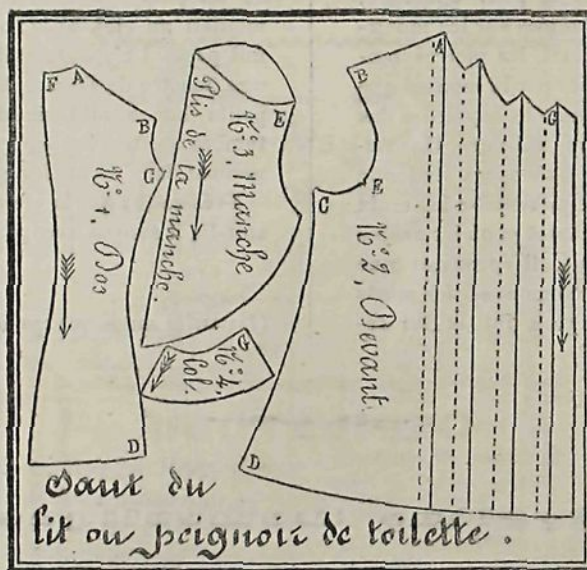 F A B C D
N° 1, Dos
N° 3, Manche
Plis de la manche.
E
N° 4,
Col.
G
B A G
C E
D
N° 2, Devant
Saut du
lit ou peignoir de toilette.